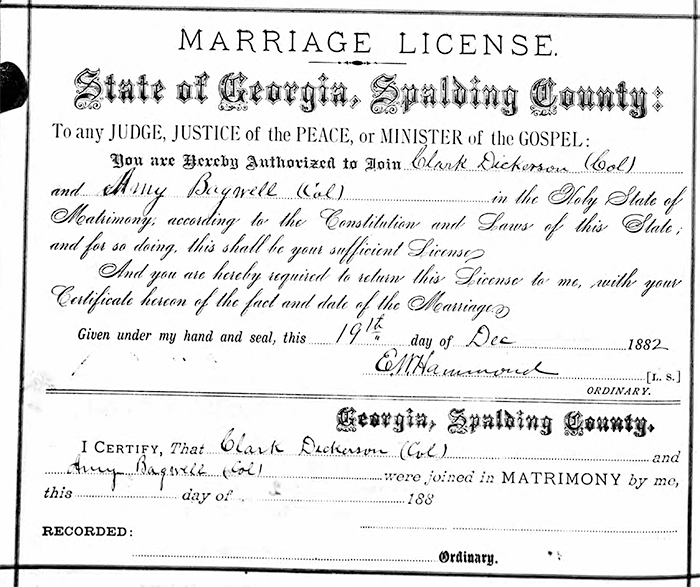 MARRIAGE LICENSE.
State of Georgia, Spalding County:
To any JUDGE, JUSTICE of the PEACE, or MINISTER of the GOSPEL:
You are Hereby Authorized to Join Clark Dickerson (Col)
and Amy Bagwell (Col) in the Holy State of
Matrimony, according to the Constitution and Laws of this State;
and for so doing, this shall be your sufficient License,
And you are hereby required to return this License to me, with your
Certificate hereon of the fact and date of the Marriage,
Given under my hand and seal, this 19th day of Dec 1882
E.W. Hammond [L. S.]
ORDINARY.
Georgia, Spalding County.
I CERTIFY, That Clark Dickerson (Col) and
Amy Bagwell (Col) were joined in MATRIMONY by me,
this day of 188
RECORDED:
Ordinary.